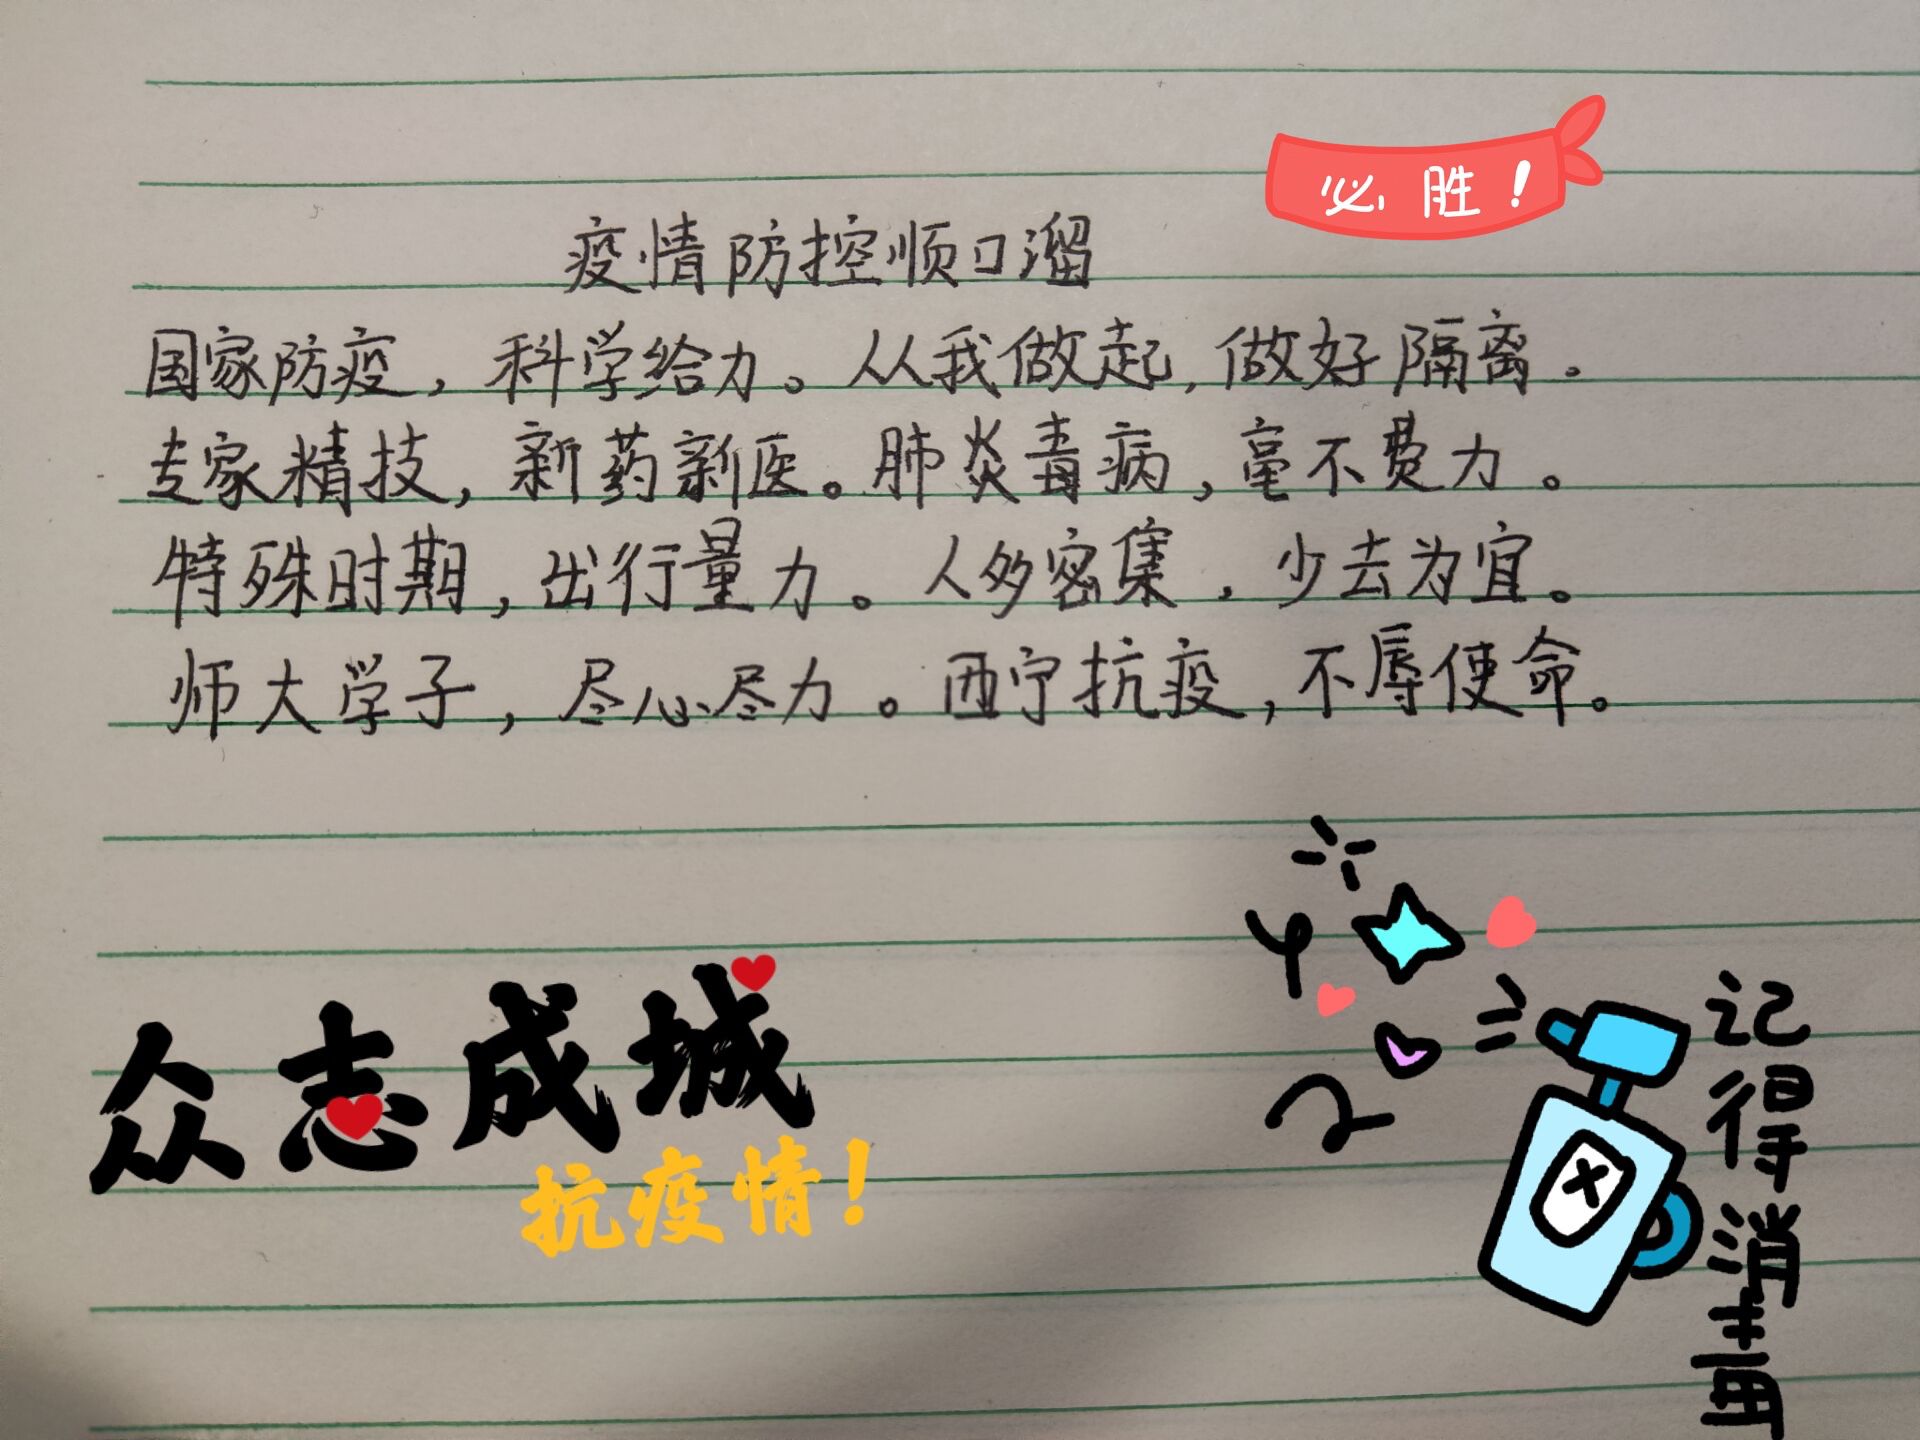 必胜!
疫情防控顺口溜
国家防疫，科学给力。从我做起，做好隔离。
专家精技，新药新医。肺炎毒病，毫不费力。
特殊时期，出行量力。人多密集，少去为宜。
师大学子，尽心尽力。西宁抗疫，不辱使命。
众志成城
抗疫情!
记得消毒